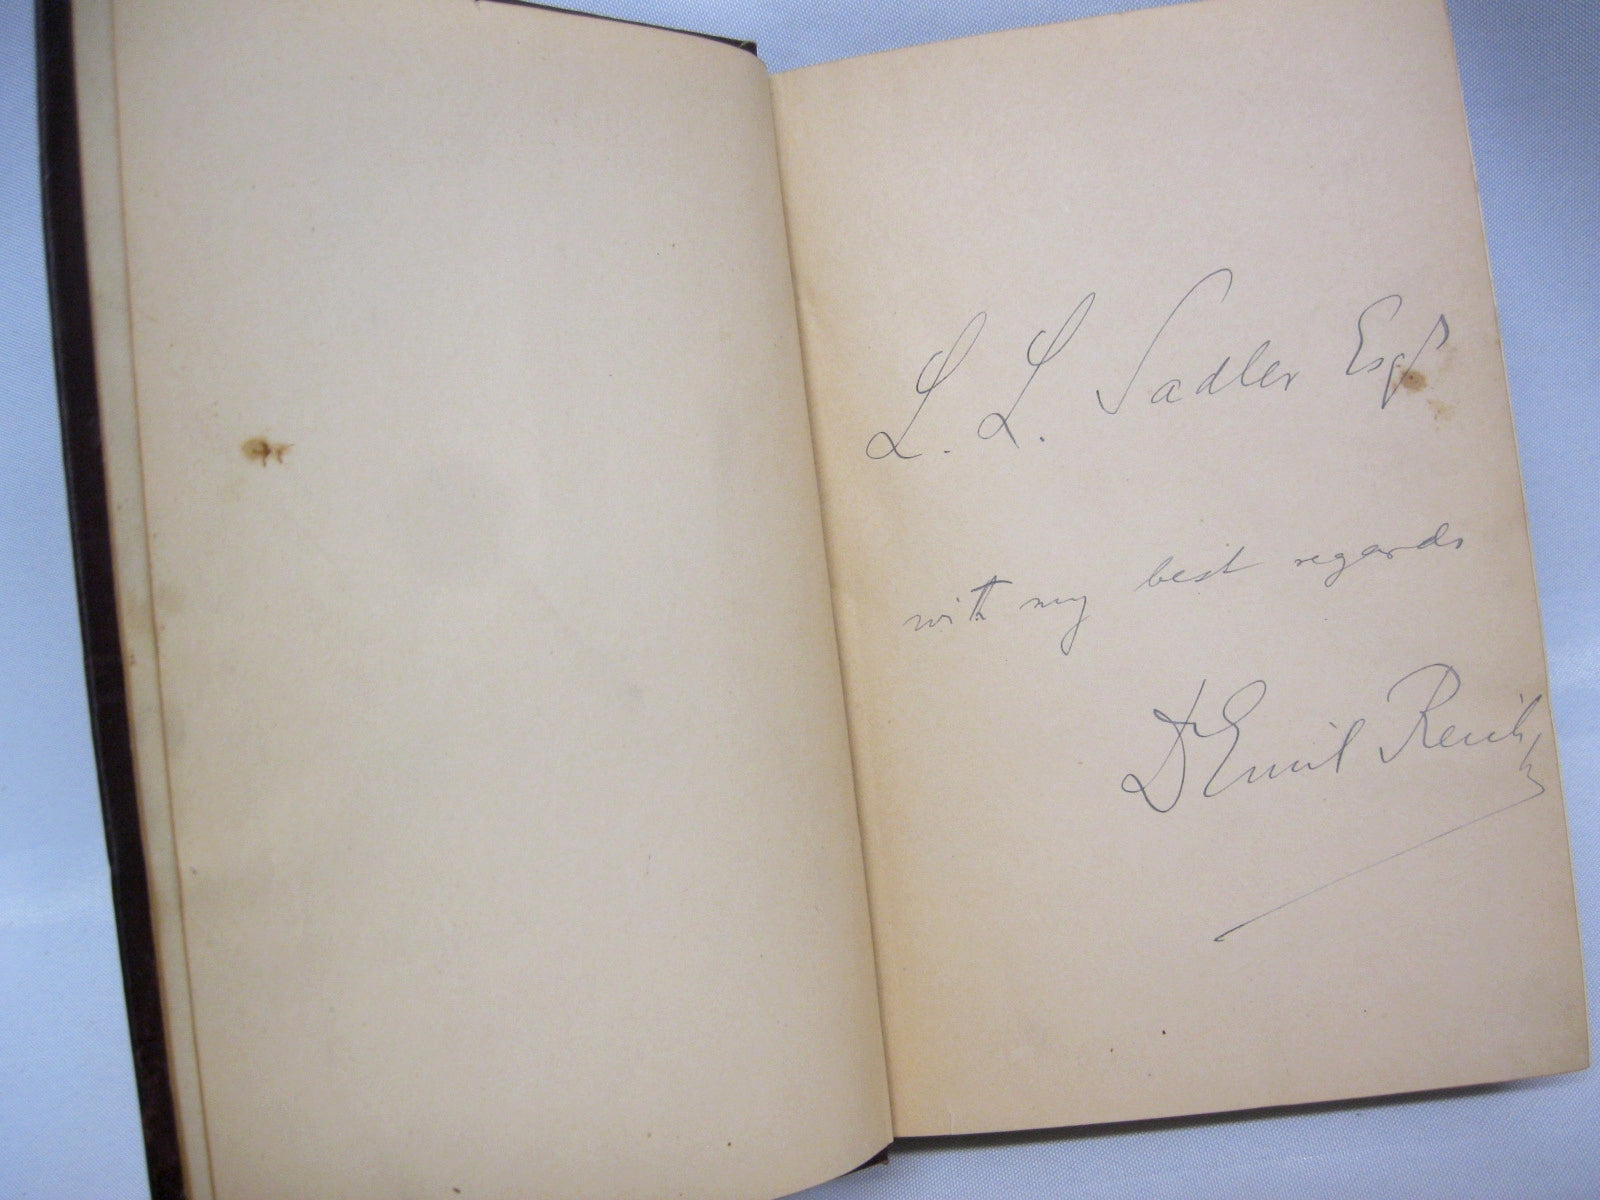 L. L. Sadler Esqr
with my best regards
Dr Emil Reich